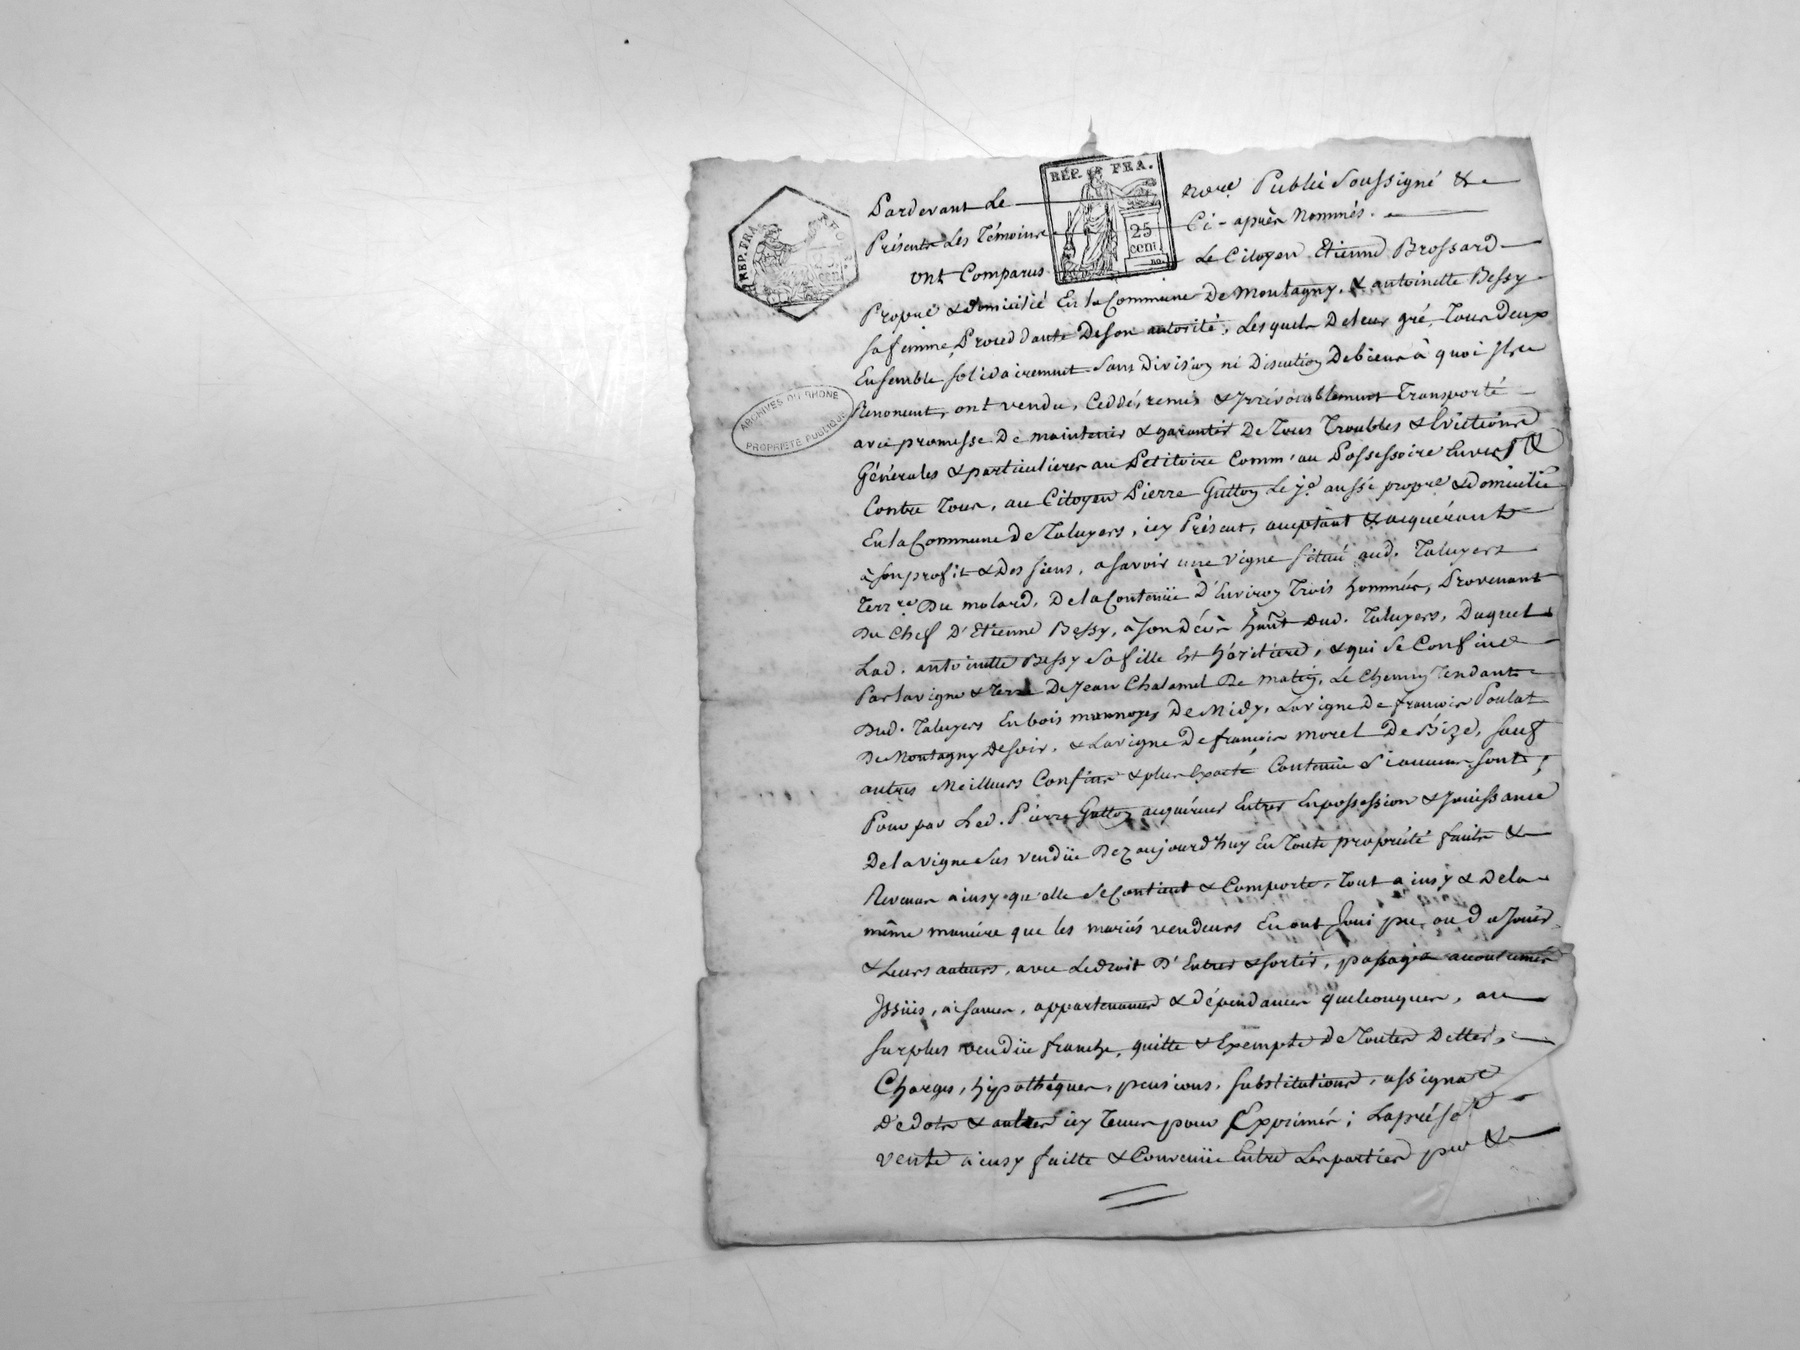 REP. FRA.
RÉP. FRA.
25
cent
ARCHIVES DU RHONE
PROPRIETE PUBLIQUE
Pardevant Le Nore. Public Soussigné &
Présents Les Témoins Ci-après Nommés.
ont Comparus Le Citoyen Etienne Brossard
Propre. & domicilié En la Commune De Montagny, & antoinette Bessy
sa femme, Proceddante De son autorité, Lesquels De leur gré, Tous Deux
Ensemble solidairement sans Division ni Discution De biens à quoi Ils
Renoncent, ont vendu, Ceddé, remis & Irrévocablement Transporté
avec promesse De maintenir & garantir De Tous Troubles & Evictions
Générales & particulieres au Petitoire Comm' au Possessoire Envers &
Contre Tous, au Citoyen Pierre Guttoy Le je. aussi propre. & Domicilié
En la Commune De Taluyers, icy Présent, acceptant & acquérant
à son profit & Des siens, a savoir une vigne situé aud. Taluyers
Terr.re Du molard, De la Contenüe D'Environ Trois hommées, Provenant
Du Chef D'Etienne Bessy, à son décès haut dud. Taluyers, Duquel
Lad. antoinette Bessy sa fille Est héritiere, & qui se Confine
Par la vigne & Terre De Jean Chatamel De matin, Le Chemin Tendant
Dud. Taluyers En bois De Midy, La vigne De françois Poulat
De Montagny De soir, & La vigne De françois morel De Bize, sauf
autres Meilleurs Confins & plus Exacte Contenüe si aucuns sont;
Pour par Led. Pierre Guttoy acquéreur Entrer En possession & Jouissance
De la vigne sus vendüe Dez aujourd'huy En Toute propriété fruits &
Revenus ainsy qu'elle se Contient & Comporte, Tout ainsy & De la
même maniére que les mariés vendeurs En ont Joui pu ou du Jouir
& Leurs auteurs, avec Le Droit D'Entrer & sortir, passage accoutumés
Issües, aisances, appartenances & dépendances quelconques, au
surplus vendüe franche, quitte & Exempte De Toutes Dettes,
Charges, hypothéques, pensions, substitutions, assignat
De dots & autres icy Tenus pour Exprimés; La présente
vente ainsy faitte & Convenüe Entre Les parties pour &